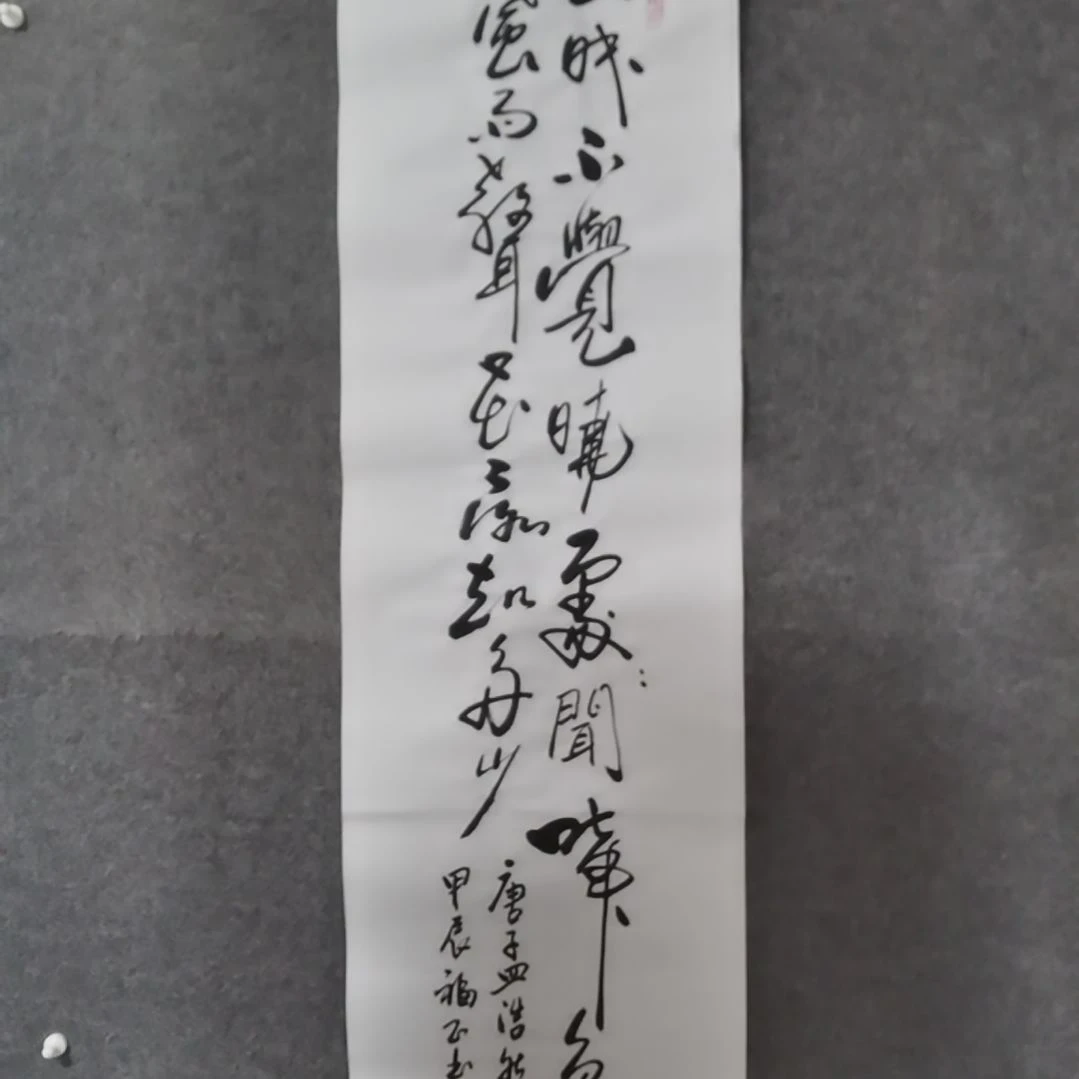 眠不覺曉處:聞啼
風雨聲花落知多少
唐孟浩然
甲辰福正书